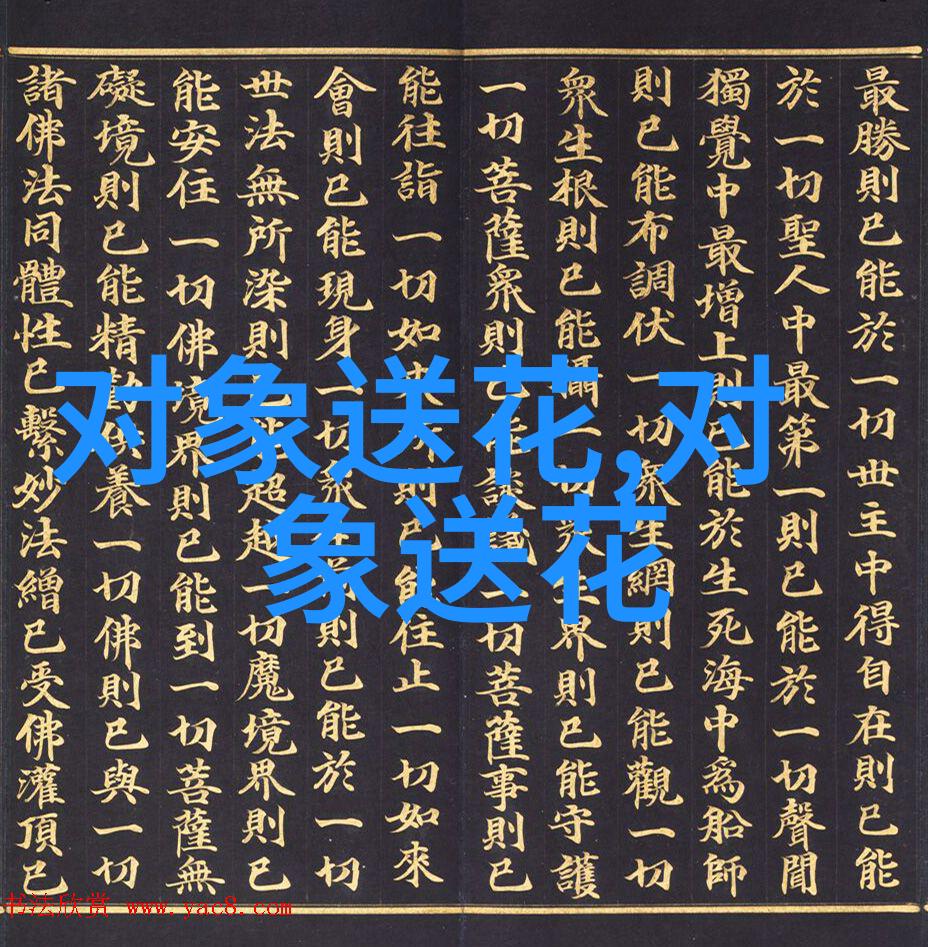 最勝則已能於一切世主中得自在則已能
於一切聖人中最第一則已能於一切聲聞
獨覺中最增上則已能於生死海中爲船師
則已能布調伏一切衆生網則已能觀一切
衆生根則已能攝一切衆生界則已能守護
一切菩薩衆則已能談議一切菩薩事則已
能往詣一切如來所則已能住止一切如來
會則已能現身一切衆生前則已能於一切
世法無所染則已能超越一切魔境界則已
能安住一切佛境界則已能到一切菩薩無
礙境則已能精勤供養一切佛則已與一切
諸佛法同體性已繫妙法繒已受佛灌頂已
对象送花,对
象送花
书法欣赏 www.yac8.com